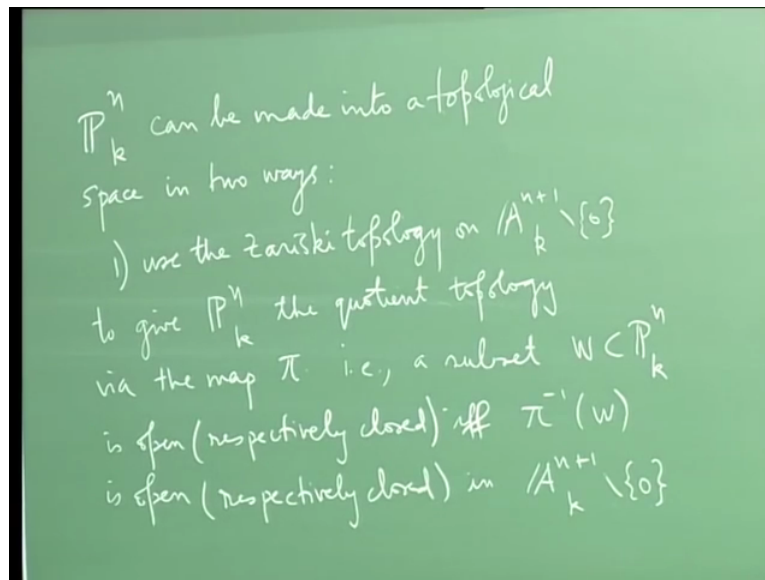 ℙⁿₖ can be made into a topological
space in two ways:
1) use the Zariski topology on 𝔸ⁿ⁺¹ₖ \ {0}
to give ℙⁿₖ the quotient topology
via the map π. i.e., a subset W ⊂ ℙⁿₖ
is open (respectively closed) iff π⁻¹(W)
is open (respectively closed) in 𝔸ⁿ⁺¹ₖ \ {0}